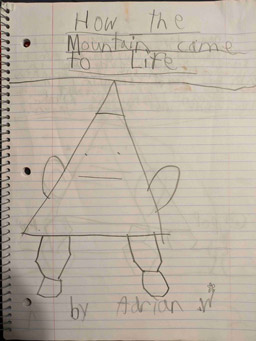 How the
Mountain came
to Life
by Adrian